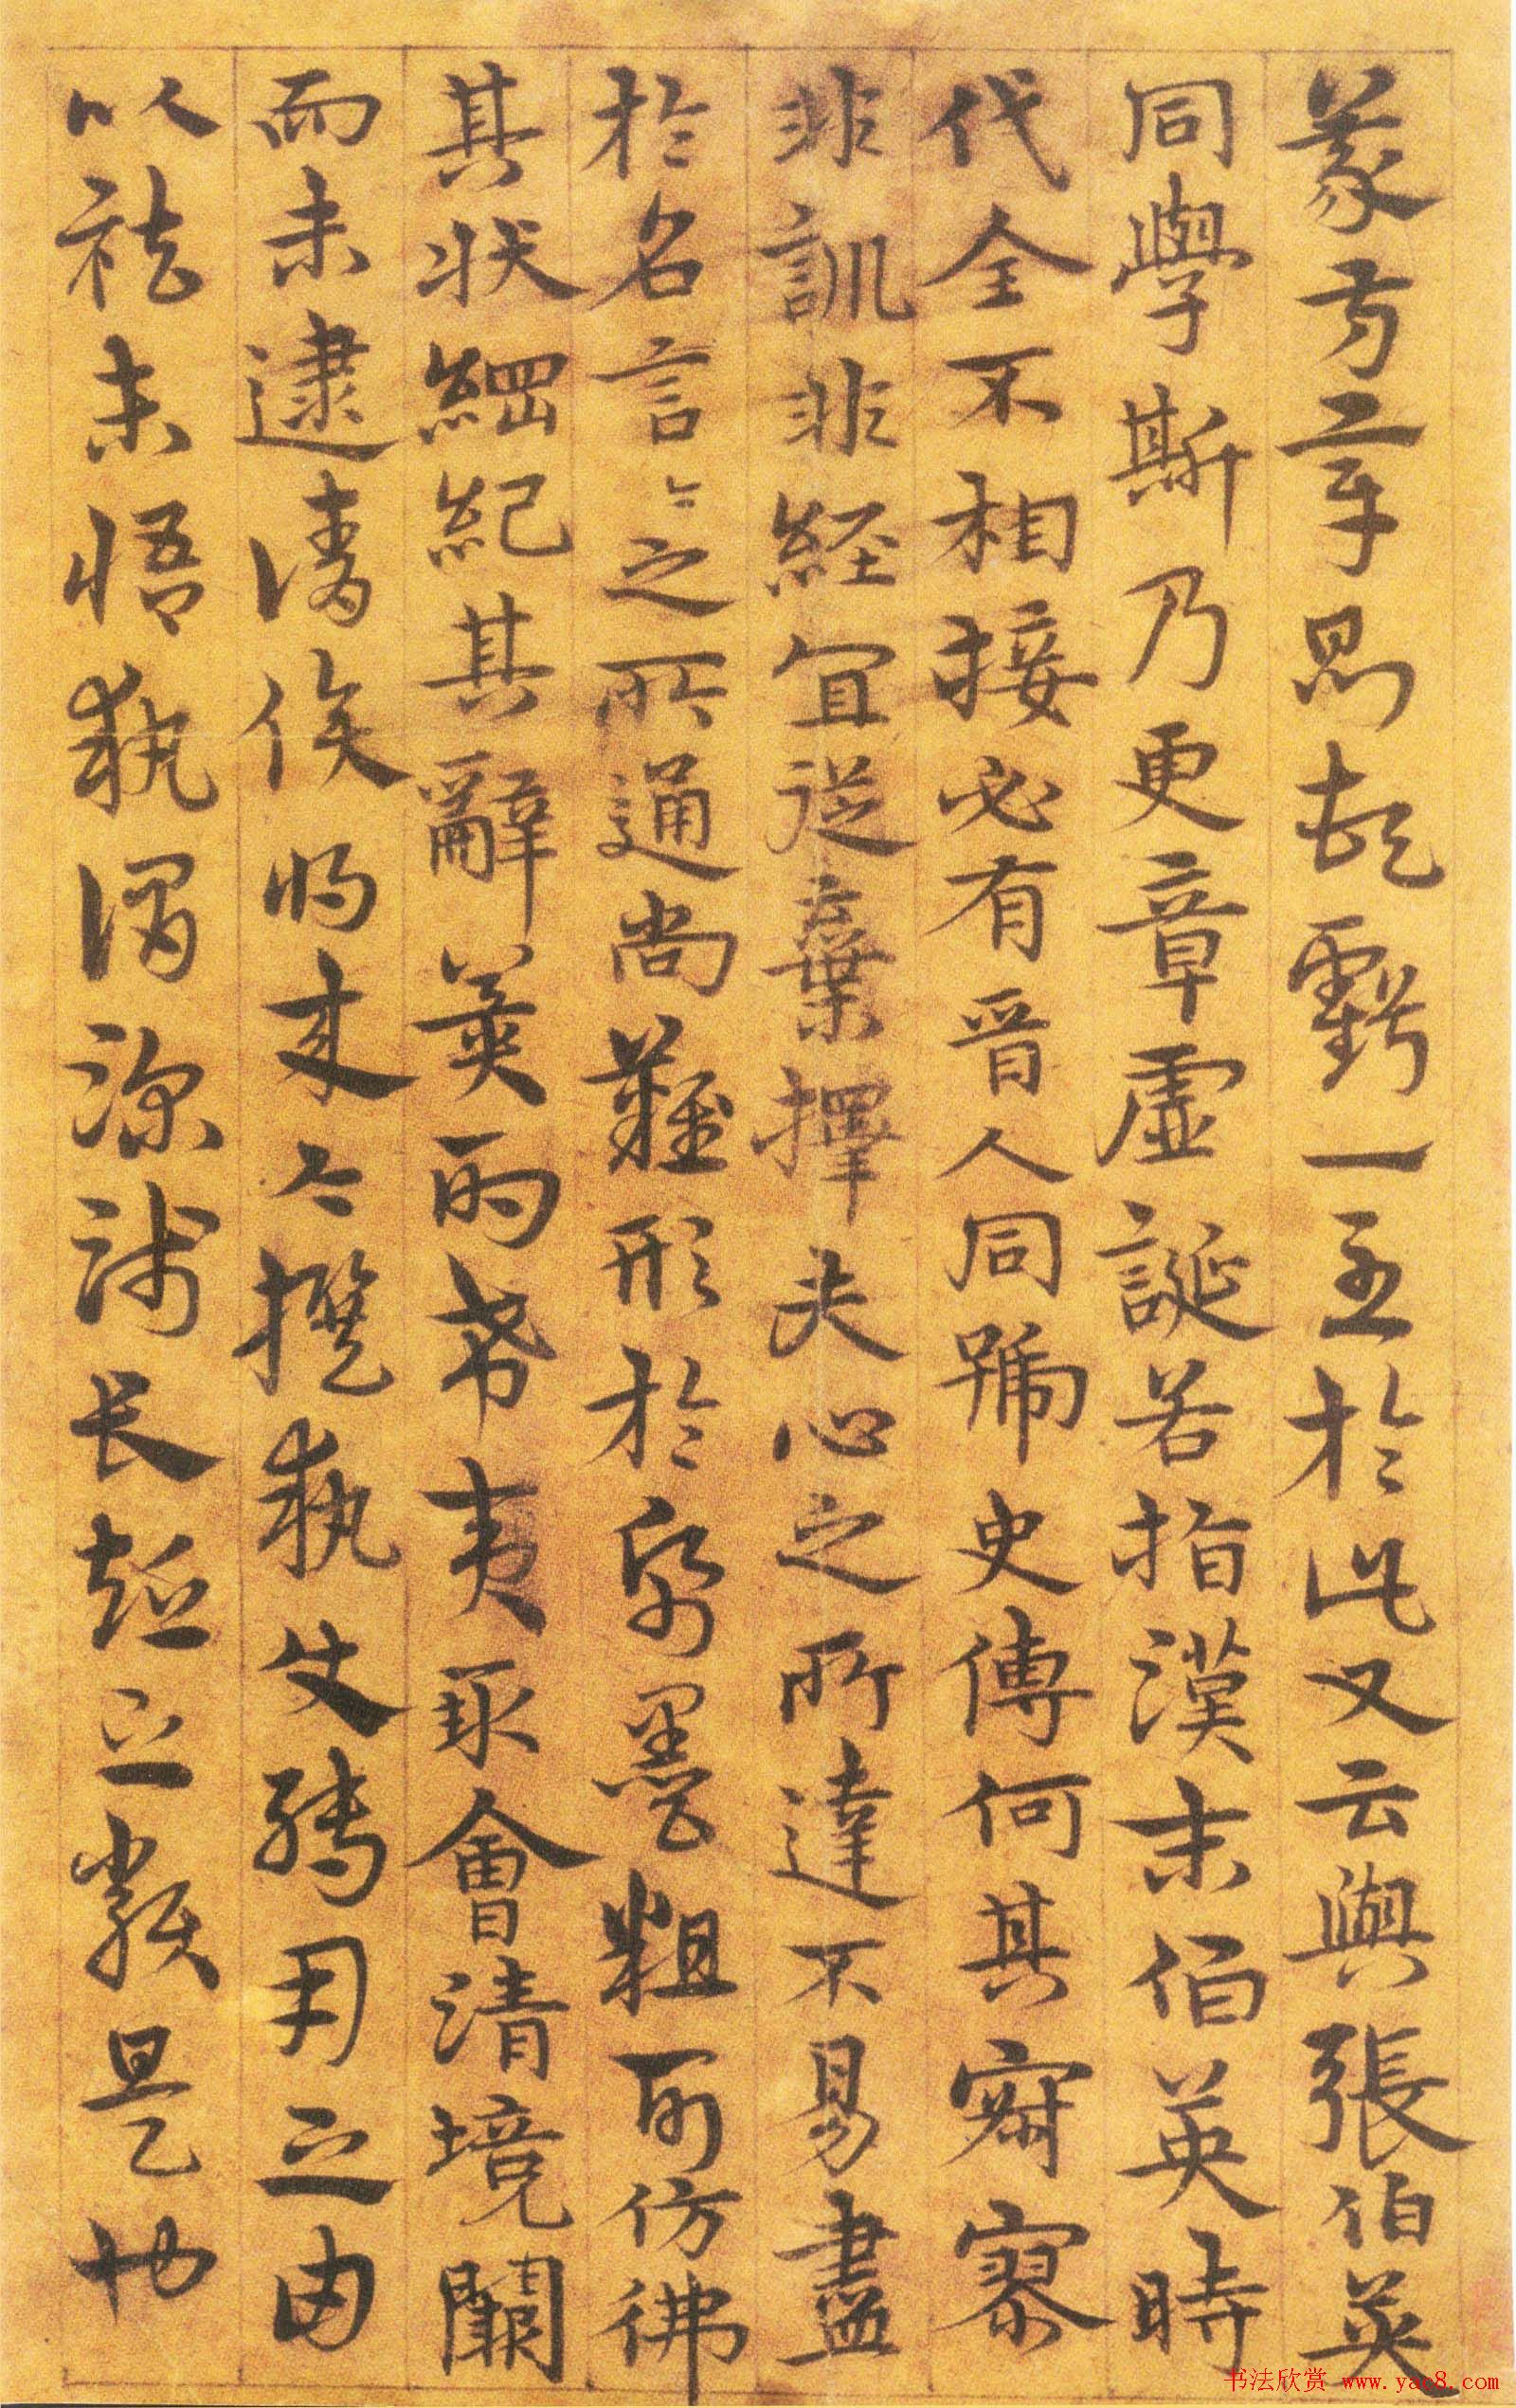 義方章則頓虧一至於此又云與張伯英
同學斯乃更章虛誕若指漢末伯英時
代全不相接必有晉人同號史傳何其寂寥
非訓非經宜從棄擇夫心之所達不易盡
於名言〻之所通尚難形於紙墨粗可仿彿
其狀綱紀其辭冀酌希夷取會清境闕
而未逮請俟將來今撰執使轉用之由
以祛未悟執謂深淺長短之類是也
书法欣赏 www.yac8.com